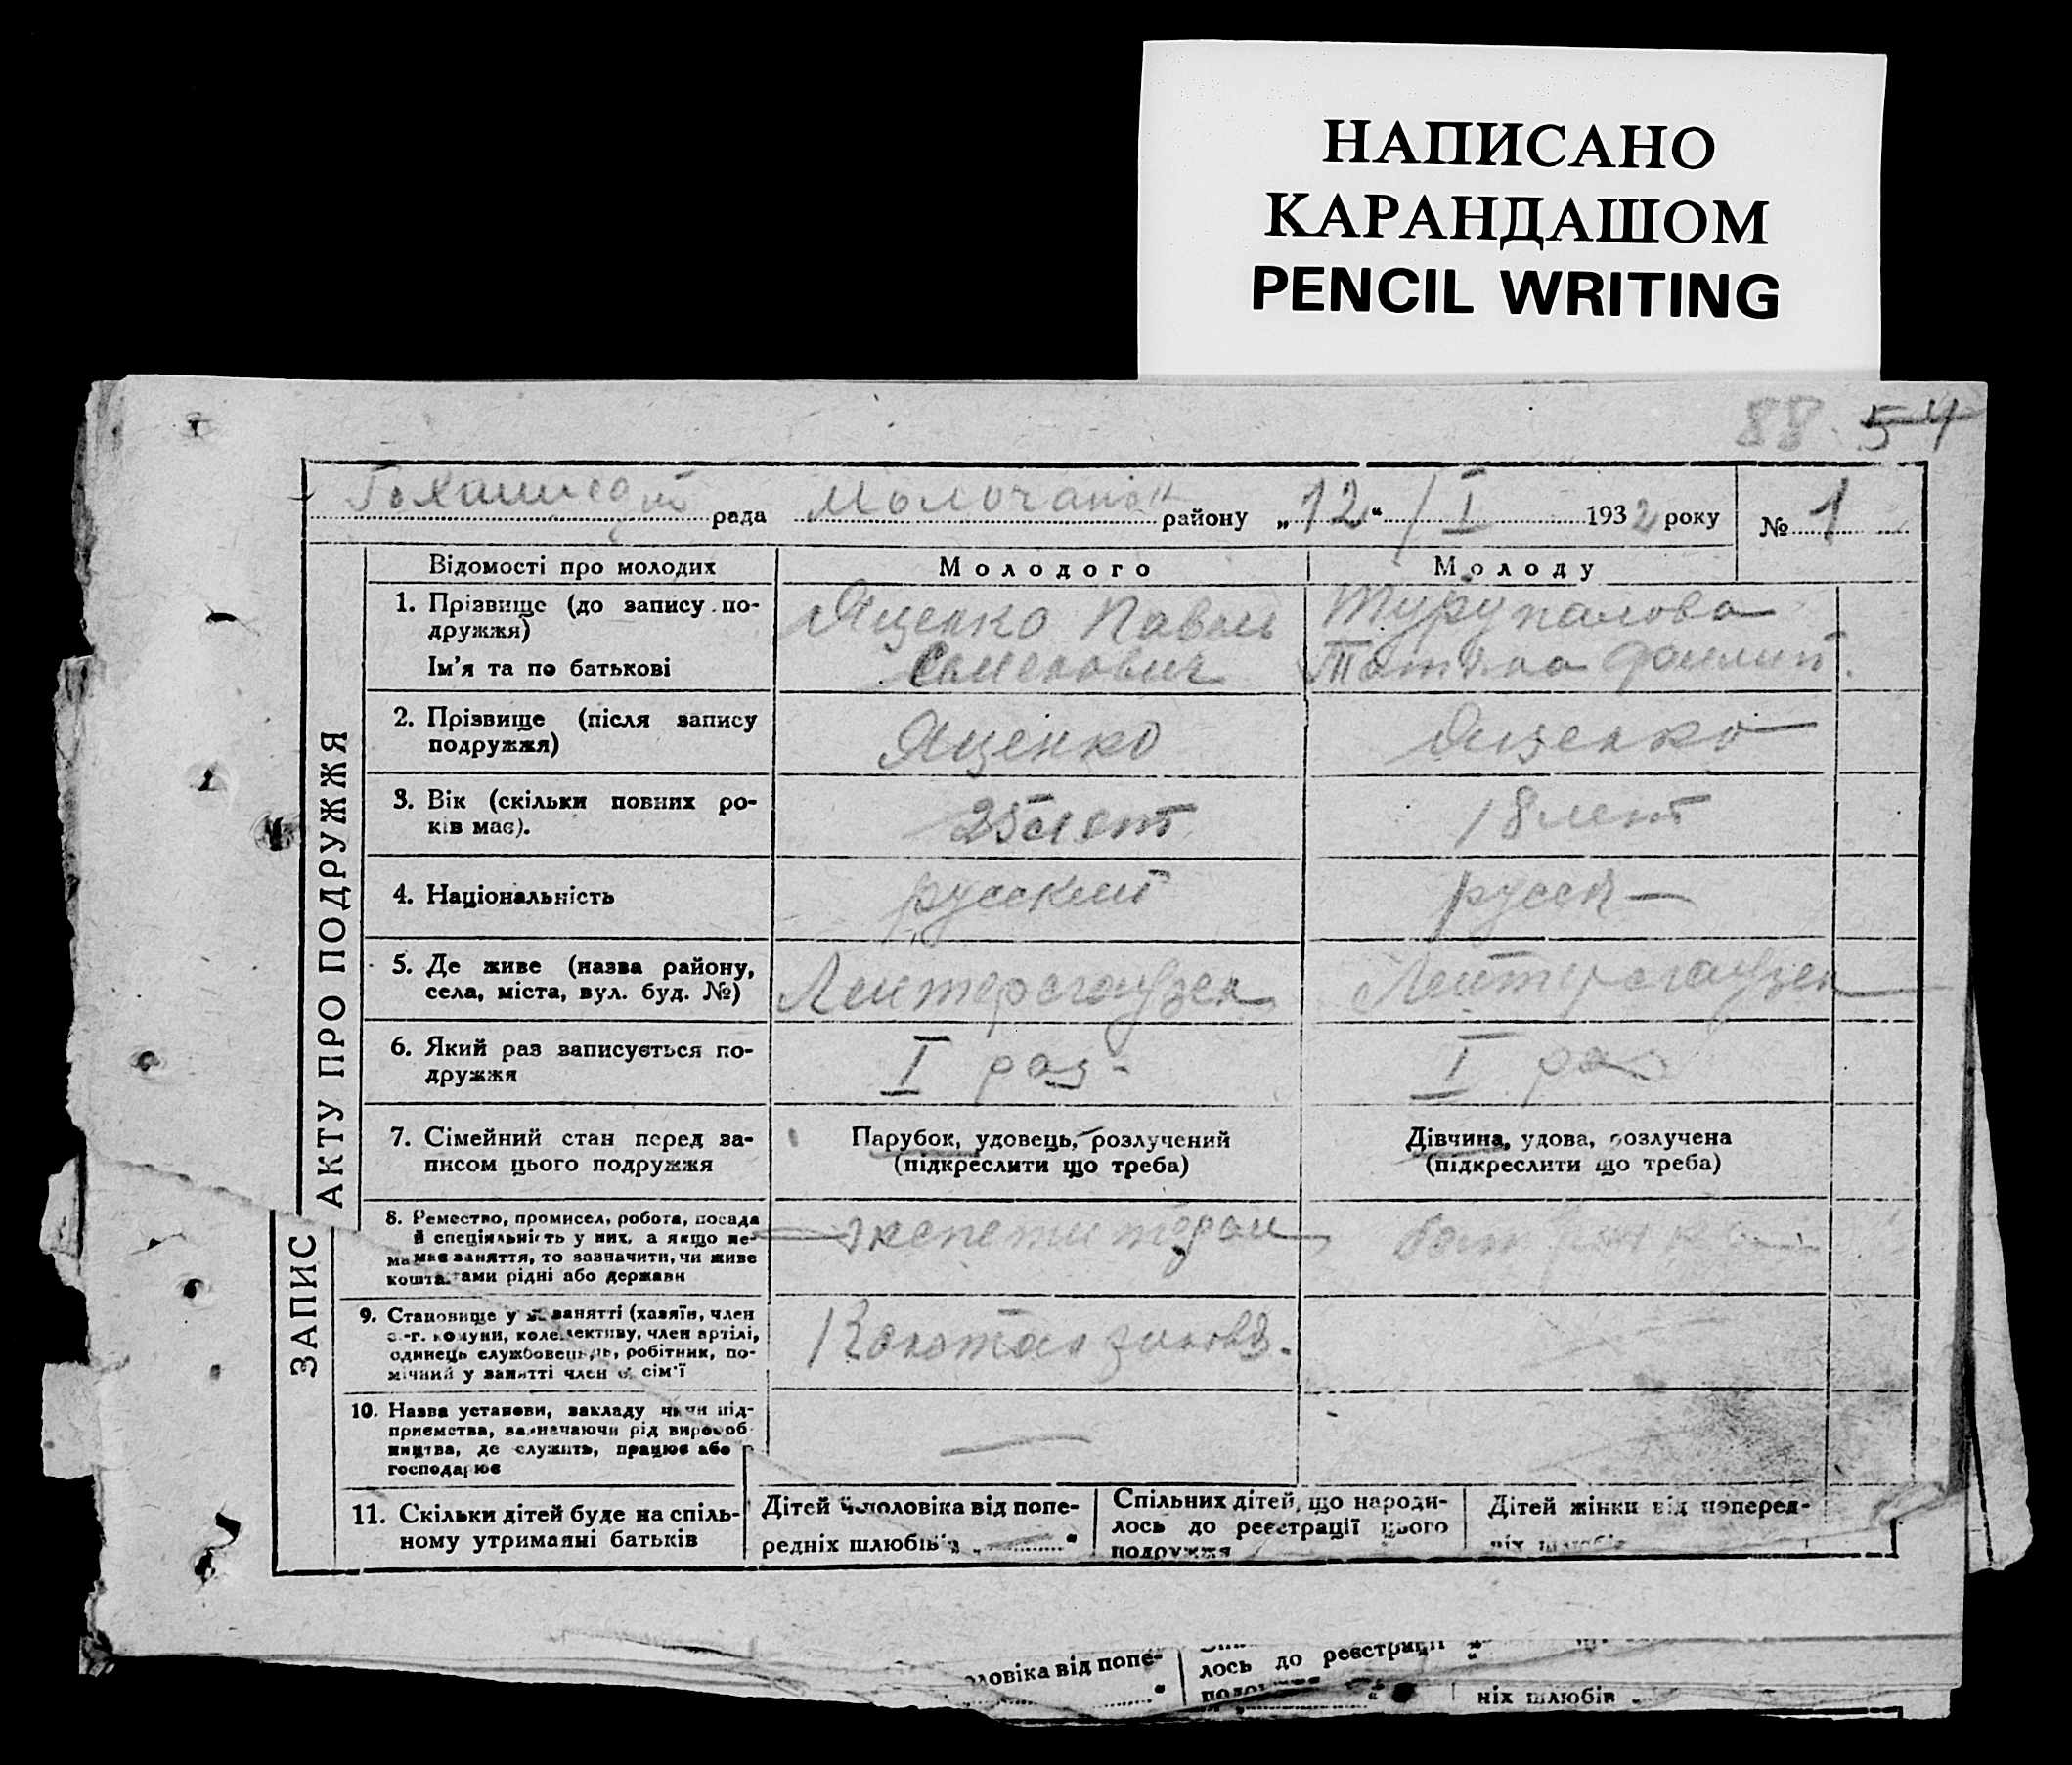 НАПИСАНО
КАРАНДАШОМ
PENCIL WRITING
88 54
рада Молочанск району „12“ / I 1932 року № 1
Відомості про молодих
Молодого
Молоду
ЗАПИС АКТУ ПРО ПОДРУЖЖЯ
1. Прізвище (до запису по-
дружжя)
Ім'я та по батькові
Яценко Павель
Семенович
Турупалова
Татяна Филип.
2. Прізвище (після запису
подружжя)
Яценко
Яценко
3. Вік (скільки повних ро-
ків має).
25 лет
18 лет
4. Національність
русский
русск—
5. Де живе (назва району,
села, міста, вул. буд. №)
Лейтерсгаузен
Лейтерсгаузен
6. Який раз записується по-
дружжя
I раз
I раз
7. Сімейний стан перед за-
писом цього подружжя
Парубок, удовець, розлучений
(підкреслити що треба)
Дівчина, удова, розлучена
(підкреслити що треба)
8. Ремество, промисел, робота, посада
й спеціяльність у них, а якщо не-
має заняття, то зазначити, чи живе
коштами рідні або держави
9. Становище у занятті (хазяїн, член
с.-г. комуни, колективу, член артілі,
одинець службовець, робітник, по-
мічний у занятті член сім'ї
10. Назва установи, закладу чи під-
приємства, зазначаючи рід вироб-
ництва, де служить, працює або
господарює
11. Скільки дітей буде на спіль-
ному утриманні батьків
Дітей чоловіка від попе-
редніх шлюбів „ “
Спільних дітей, що народи-
лось до реєстрації цього
подружжя
Дітей жінки від поперед-
ніх шлюбів
оловіка від попе-
лось до реєстрації
ніх шлюбів „